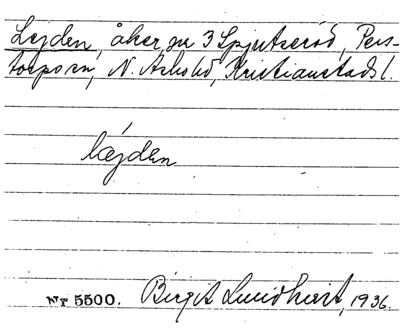 Lejden, åker, nr 3 Spjutseröd, Pers-
torps sn, N. Åsbo hd, Kristianstads l.
læjden
Nr 5500. Birgit Lundkvist, 1936.